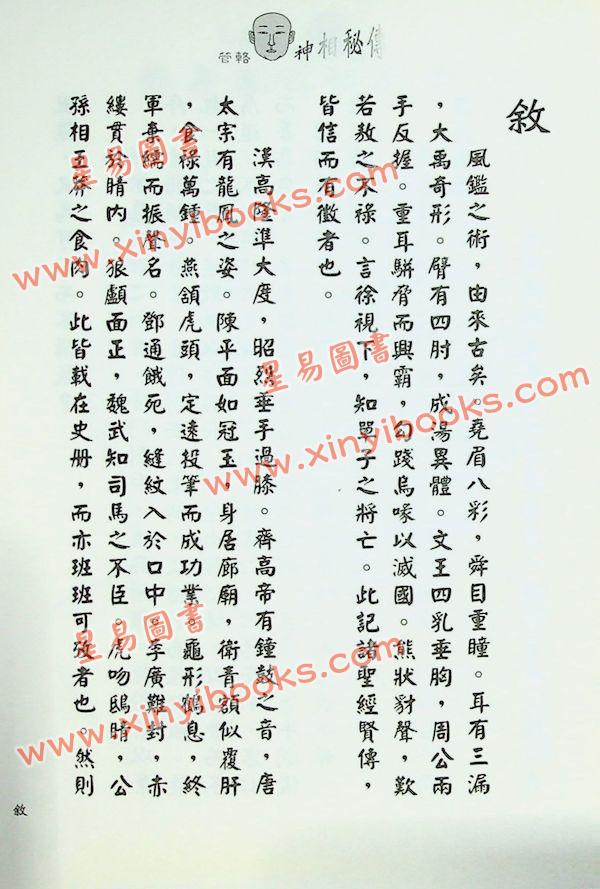 管輅 神相秘傳
敘
風鑑之術，由來古矣。堯眉八彩，舜目重瞳。耳有三漏
，大禹奇形。臂有四肘，成湯異體。文王四乳垂胸，周公兩
手反握。重耳駢脅而興霸，勾踐烏喙以滅國。熊狀豺聲，歎
若敖之不祿。言徐視下，知單子之將亡。此記諸聖經賢傳，
皆信而有徵者也。
漢高隆準大度，昭烈垂手過膝。齊高帝有鐘鼓之音，唐
太宗有龍鳳之姿。陳平面如冠玉，身居廊廟，衛青額似覆肝
，食祿萬鍾。燕頷虎頭，定遠投筆而成功業。龜形鶴息，終
軍棄繻而振聲名。鄧通餓死，縫紋入於口中。李廣難封，赤
縷貫於睛內。狼顧面正，魏武知司馬之不臣。虎吻鴟睛，公
孫相王莽之食肉。此皆載在史册，而亦班班可攷者也。然則
敘
星易圖書
www.xinyibooks.com
星易圖書
www.xinyibooks.com
星易圖書
www.xinyibooks.com